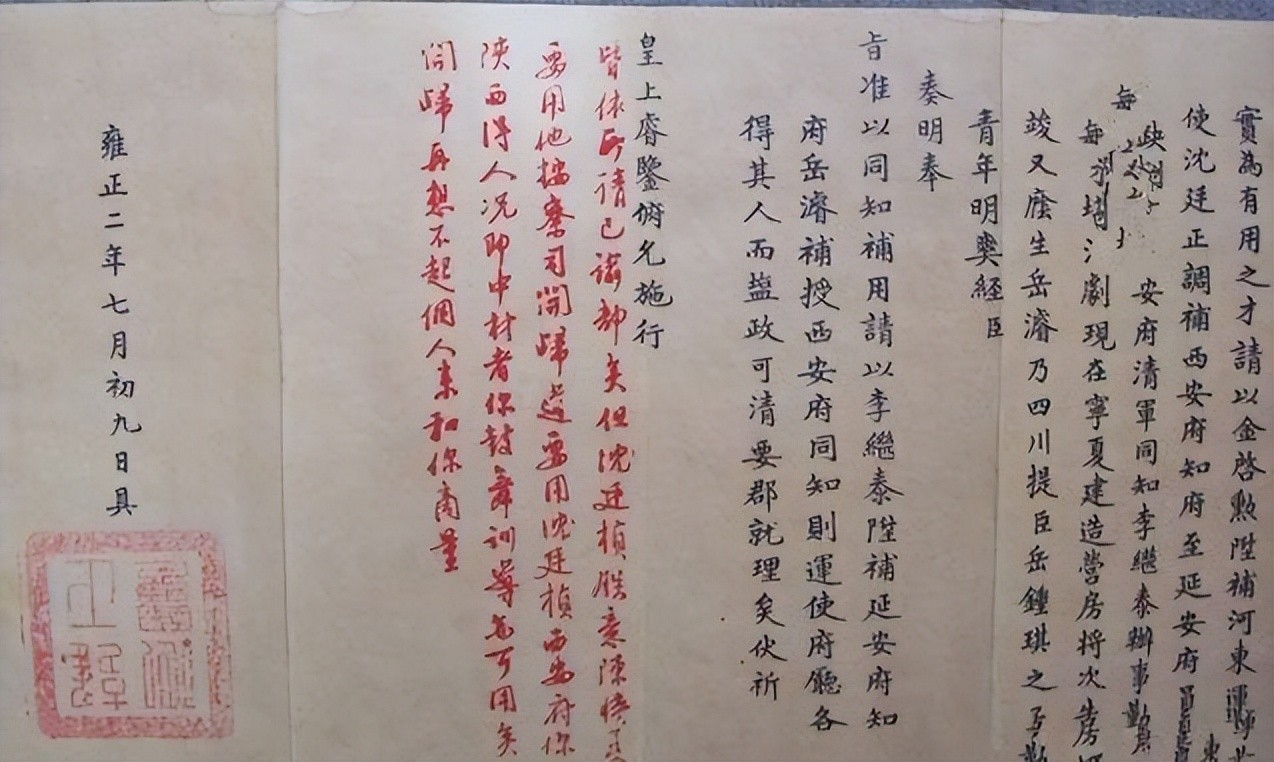 實為有用之才請以金啓勲陞補河東運
使沈廷正調補西安府知府至延安府
安府清軍同知李繼泰辦事勤
劇現在寧夏建造營房將次
竣又廕生岳濬乃四川提臣岳鍾琪之子
青年明爽經臣
奏明奉
旨准以同知補用請以李繼泰陞補延安府知
府岳濬補授西安府同知則運使府廳各
得其人而鹽政可清要郡就理矣伏祈
皇上睿鑒俯允施行
皆依所請已諭部矣但沈廷楨朕意陳
要用他按察司開歸道要用沈廷楨西安府你
陝西得人況即中材者你鼓舞訓導亦可用矣
開歸再想不起個人來和你商量
雍正二年七月初九日具